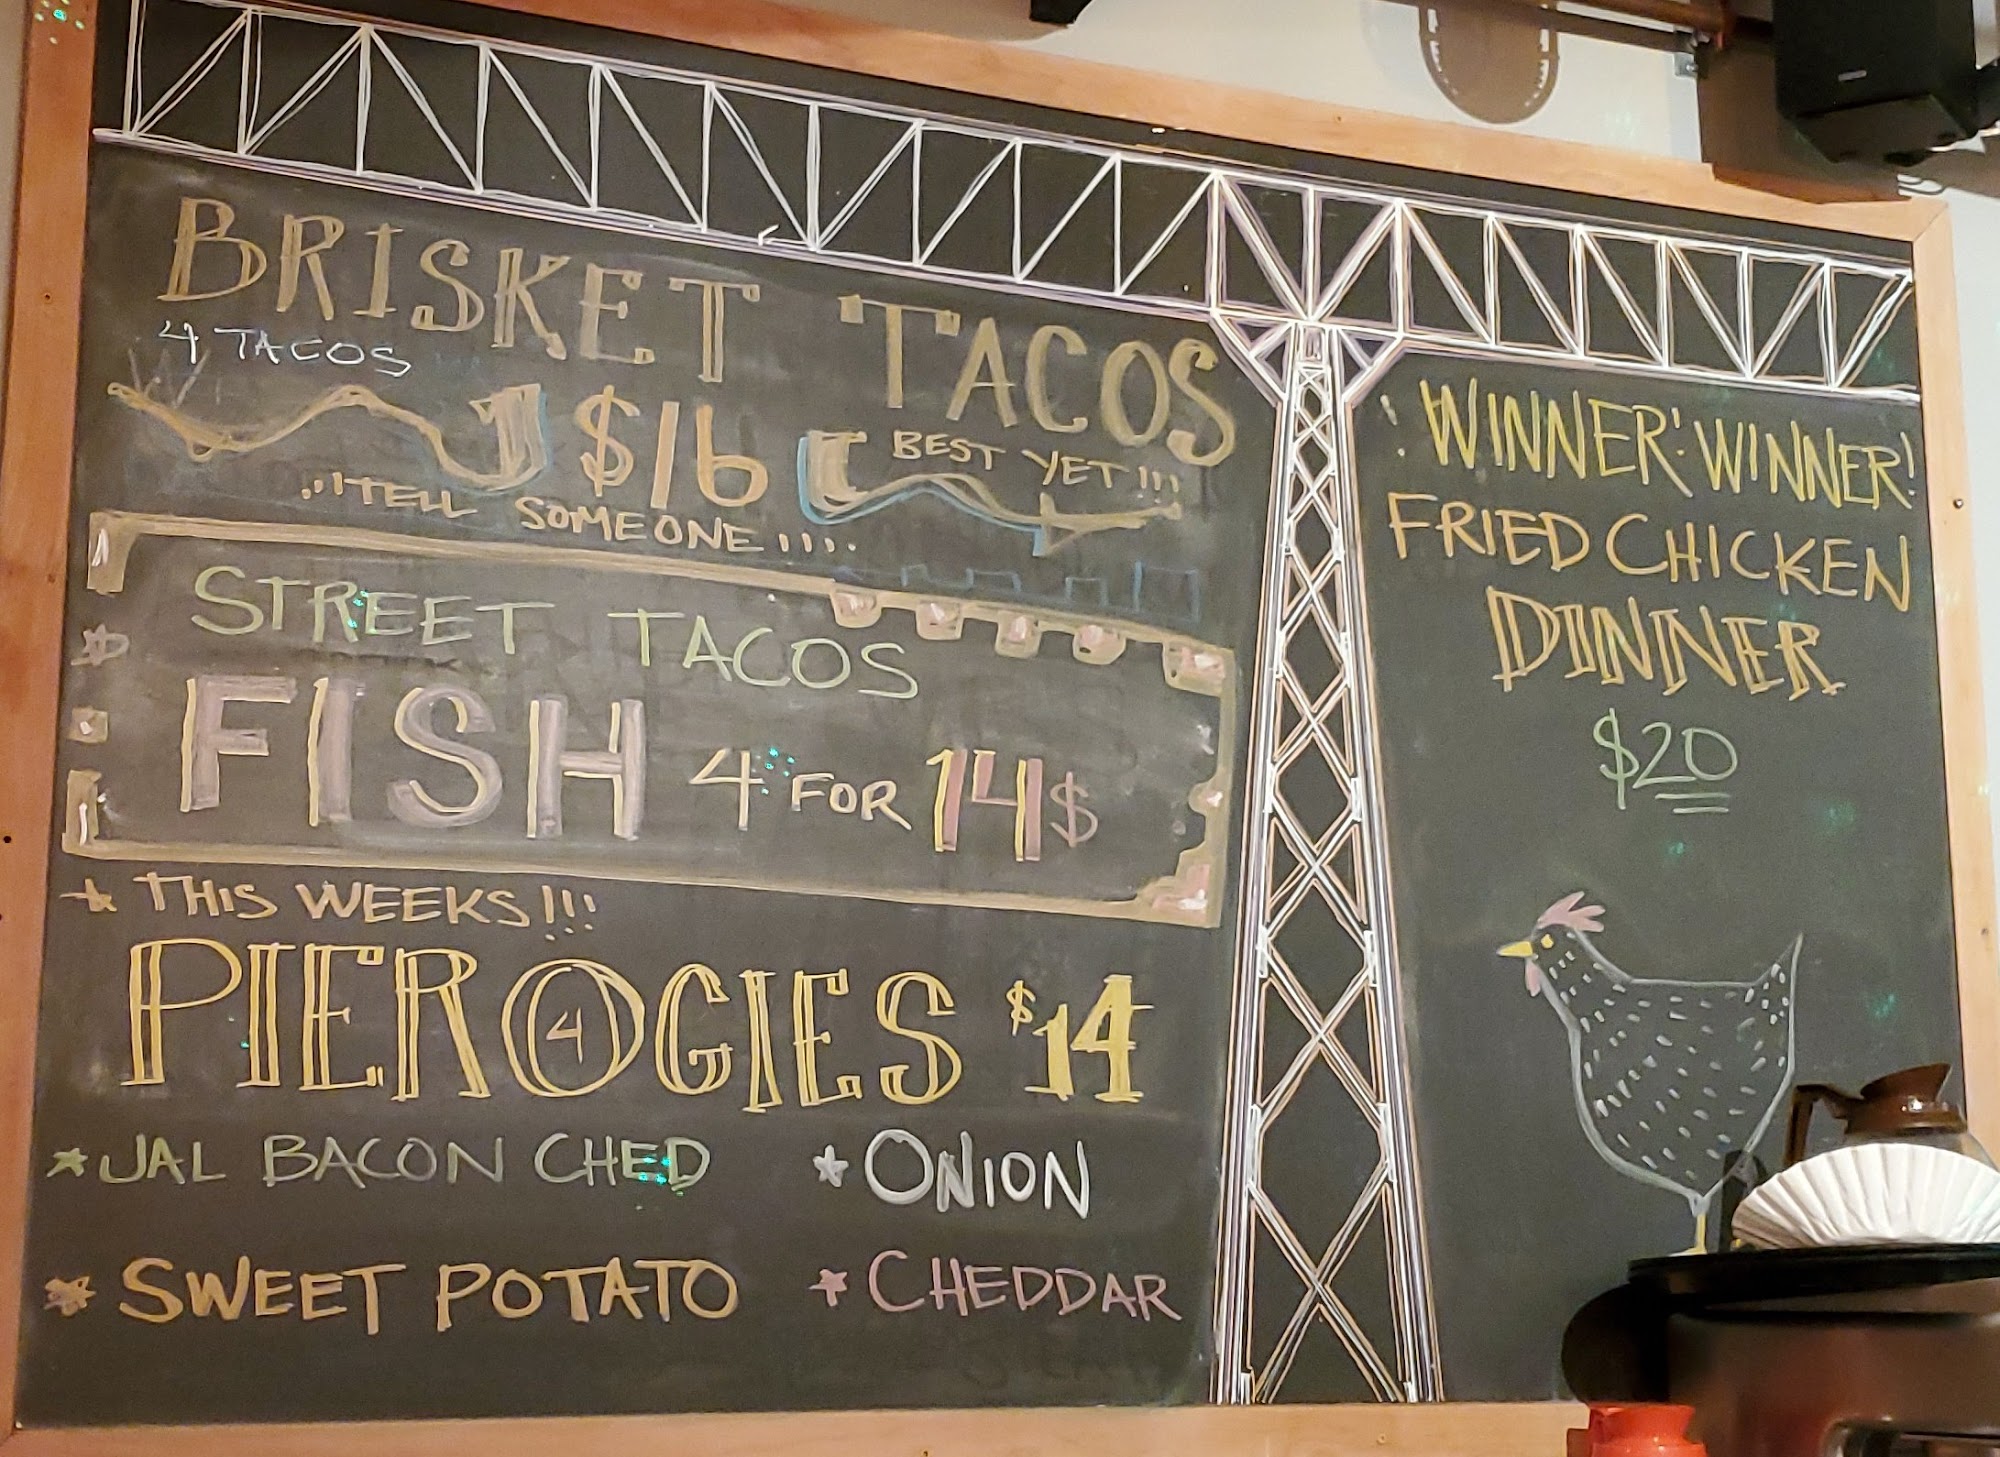 BRISKET TACOS
4 TACOS
$16
BEST YET!!!
...TELL SOMEONE!!!.
STREET TACOS
FISH 4 FOR 14$
THIS WEEKS!!!
PIEROGIES $14
4
JAL BACON CHED
ONION
SWEET POTATO
CHEDDAR
WINNER! WINNER!
FRIED CHICKEN
DINNER
$20